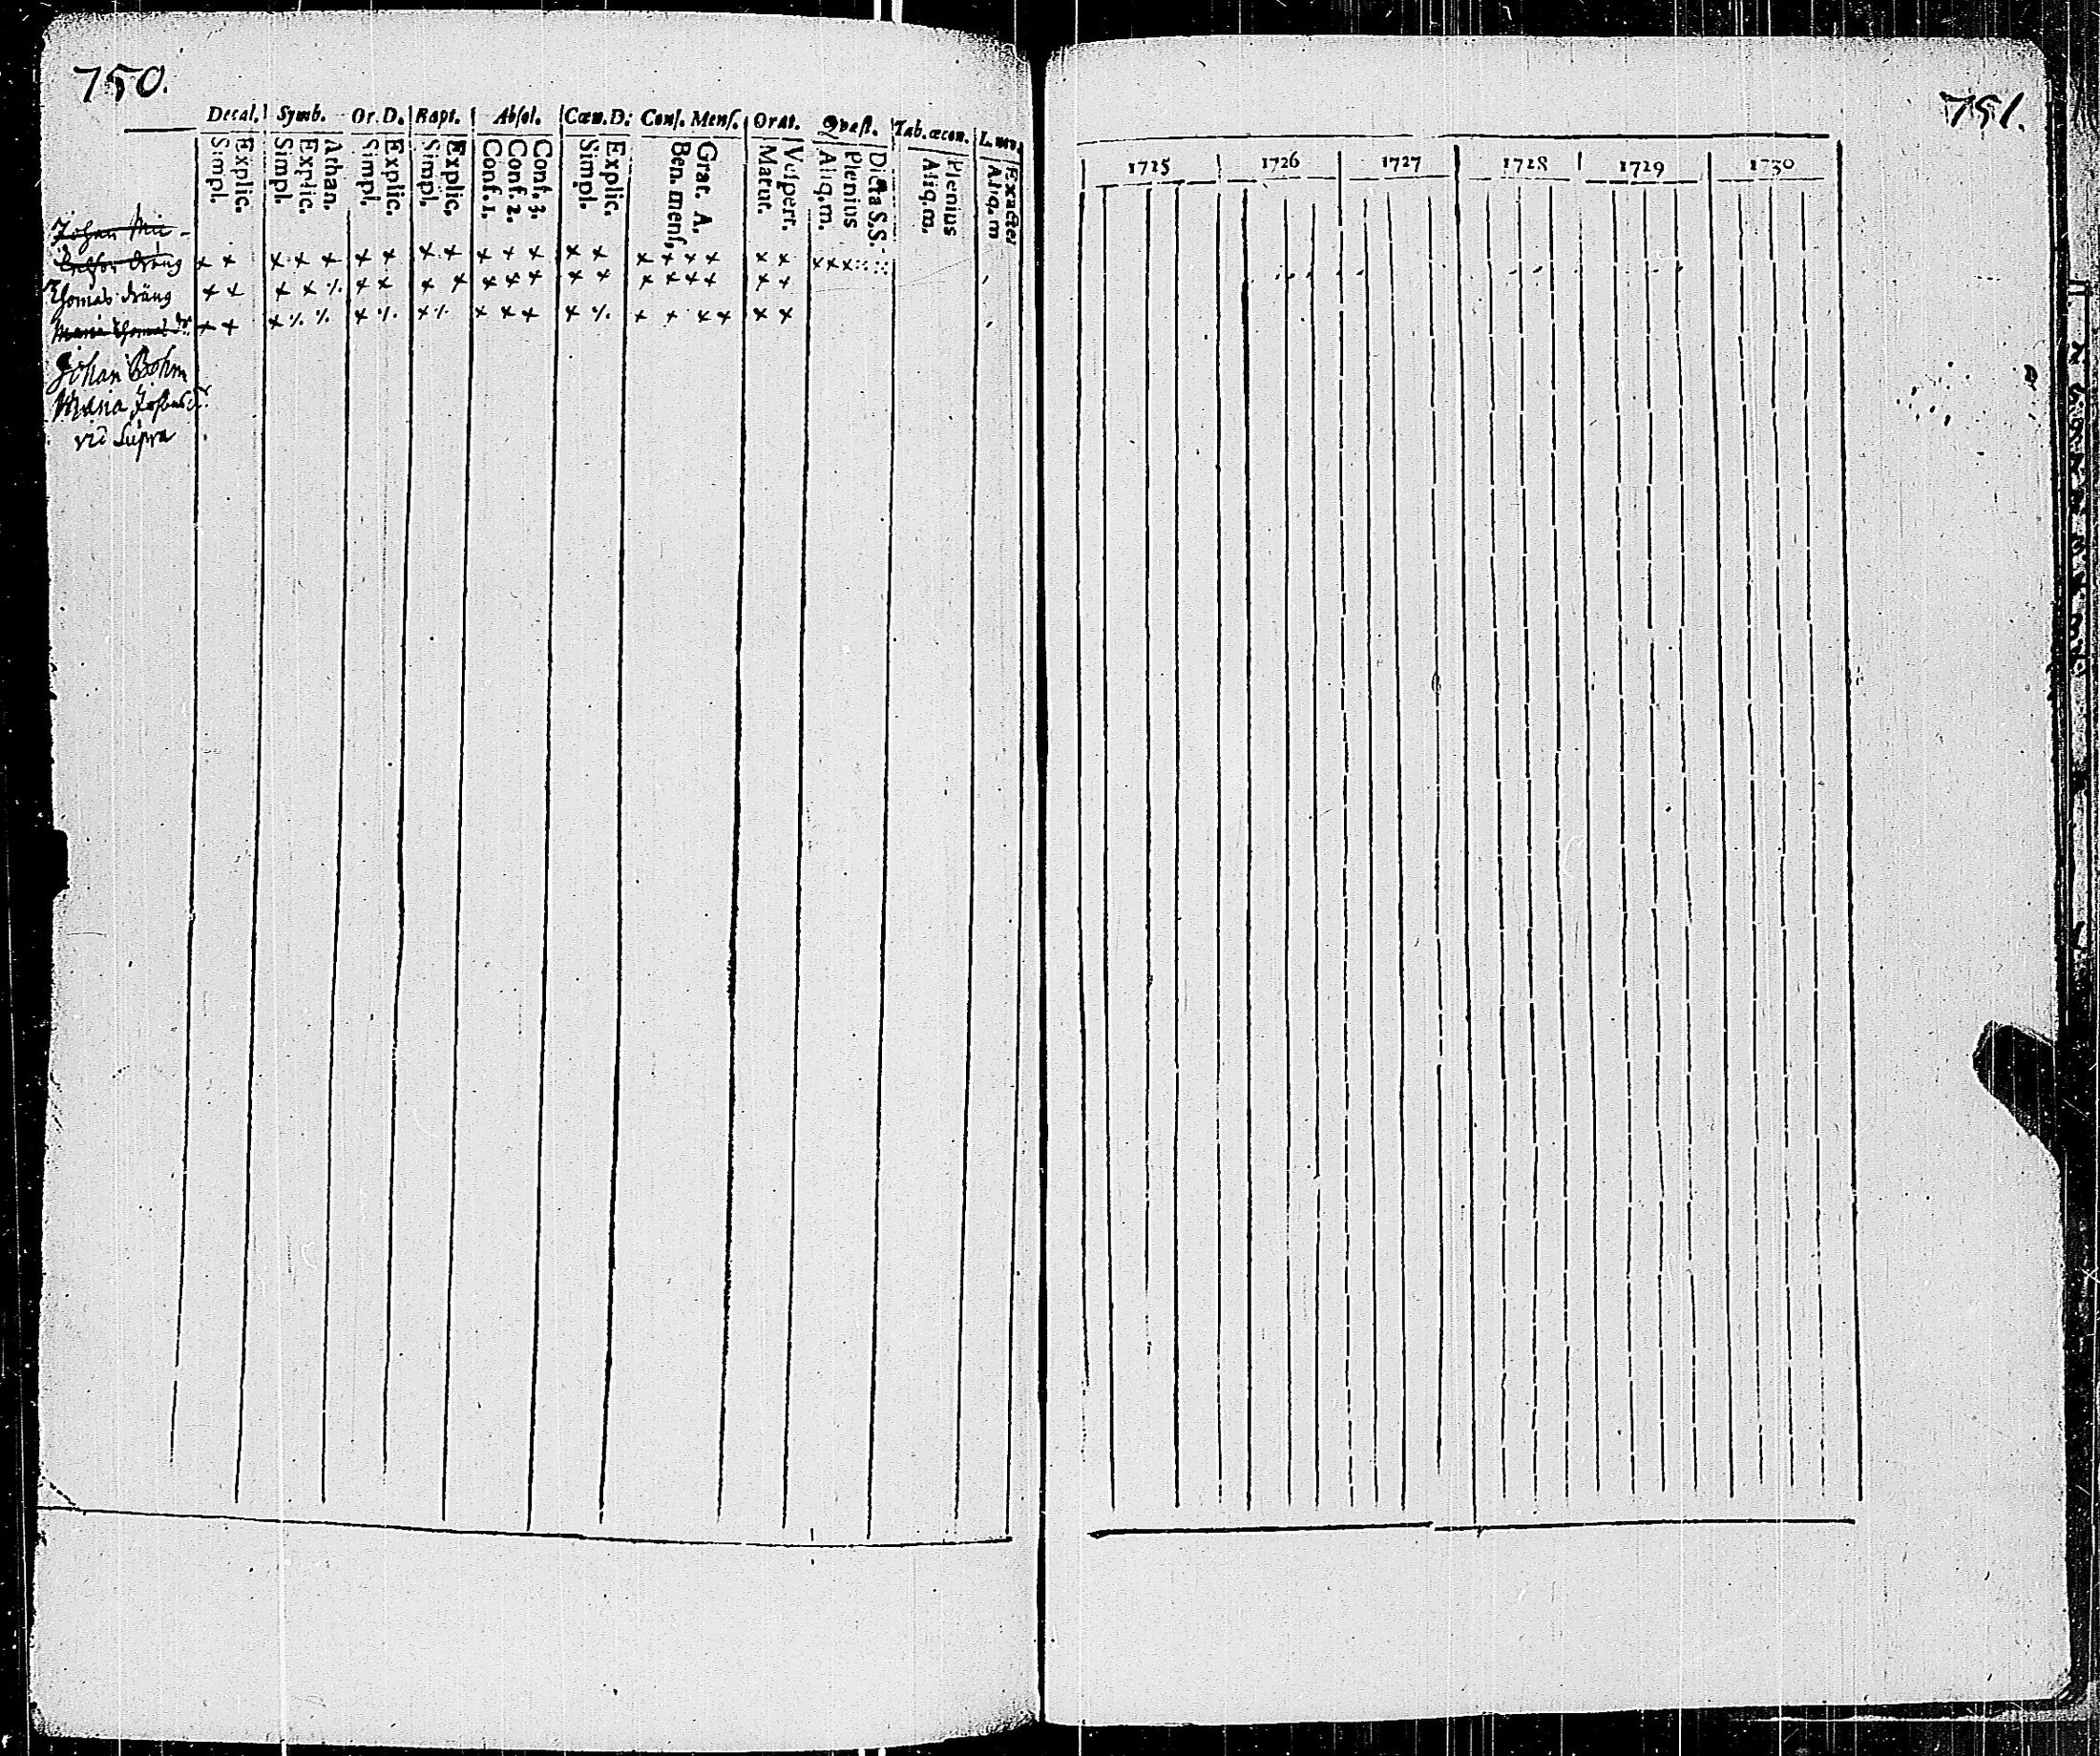 750.
Decal. Symb. Or. D. Bapt. Absol. Cœn. D. Cons. Mens. Orat. Qvæst. Tab. œcon.
Simpl. Explic. Simpl. Explic. Athan. Simpl. Explic. Simpl. Explic. Conf. 1. Conf. 2. Conf. 3. Simpl. Explic. Ben. mens. Grat. A. Matut. Vespert. Aliq. m. Plenius Dicta S.S. Aliq. m. Plenius Aliq. m Exacter
Johan
dräng × × × × × × × × × × × × × × × × × × × × × ×
Thomas dräng × × × × ٪ × × × × × × × × × × × × × × ×
Maria Thomas dr × × × ٪ ٪ × ٪ × ٪ × × × × ٪ × × × × × ×
Johan Bohm
Maria
vid Supra
751.
1725 1726 1727 1728 1729 1730